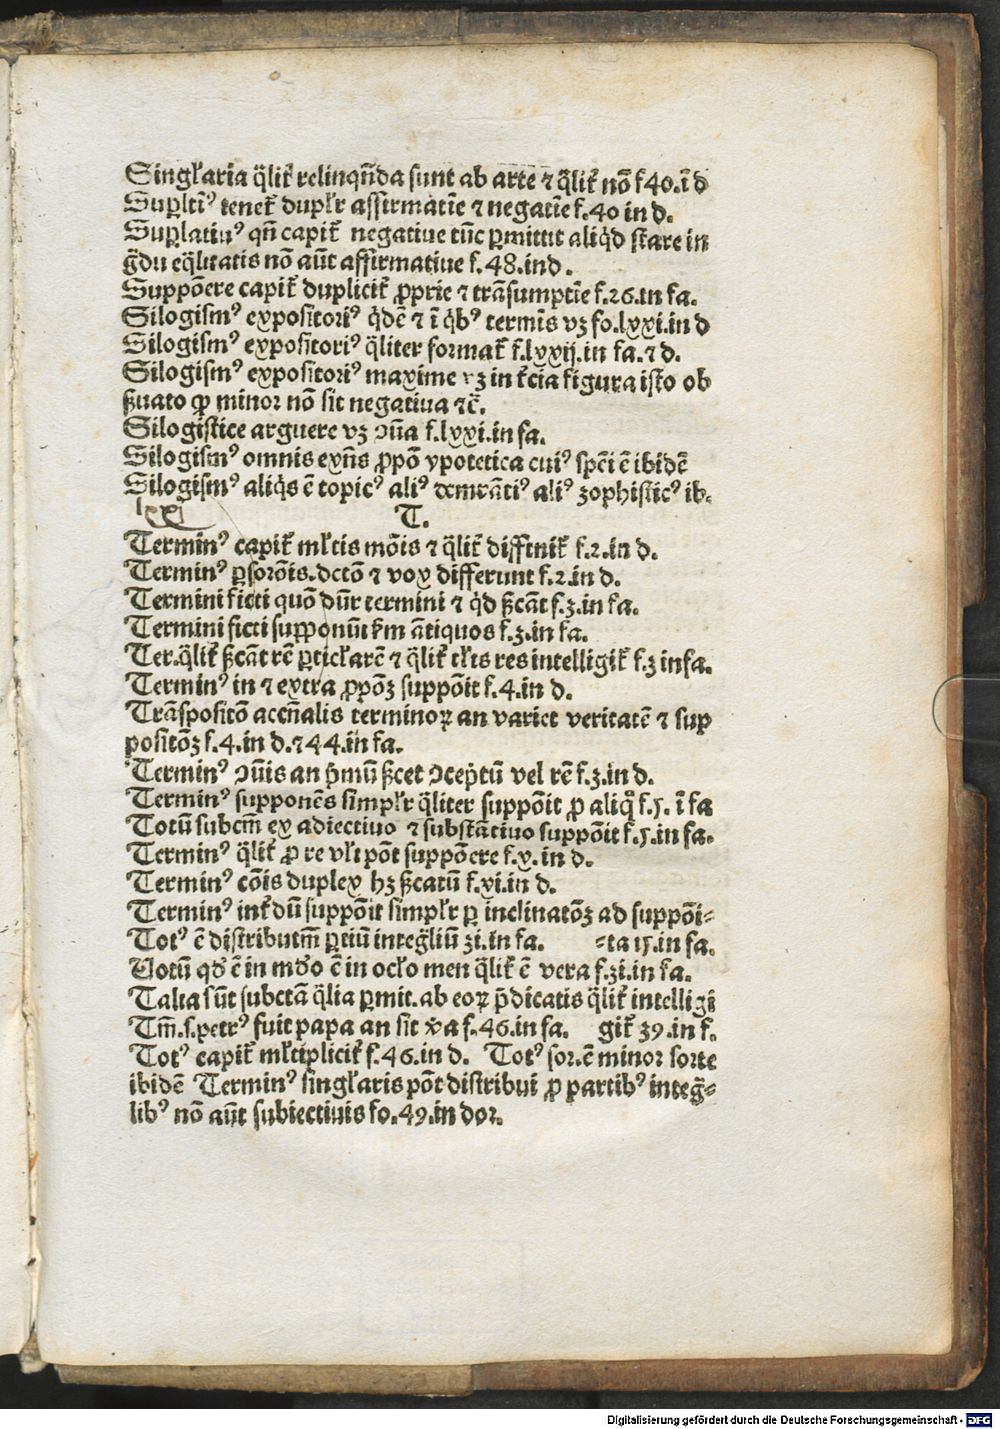 Singl̄aria q̄lit̄ relinqn̄da sunt ab arte ⁊ q̄lit̄ nō f 40.ī d
Sup̱ltīꝰ tenet̄ dupl̄r affirmatīe ⁊ negatīe f.40 in d.
Sup̱latiuꝰ qn̄ capit̄ negatiue tūc p̱mittit aliqd̄ stare in
g̈du eq̄litatis nō aūt affirmatiue f.48.in d.
Suppōere capit̄ duplicit̄ ꝓprie ⁊ trāsumptīe f.26.in fa.
Silogismꝰ expositoriꝰ qd̄ē ⁊ ī qb̄ꝰ termīs vꝫ fo.lxxi.in d
Silogismꝰ expositoriꝰ q̄liter format̄ f.lxxij.in fa.⁊ d.
Silogismꝰ expositoriꝰ maxime vꝫ in t̄cia figura isto ob
ẞuato ꝙ minor nō sit negatiua ⁊c̄.
Silogistice arguere vꝫ ↄn̄a f.lxxi.in fa.
Silogismꝰ omnis exn̄s ꝓpō ypotetica cuiꝰ spēi ē ibidē
Silogismꝰ aliqs̄ ē topicꝰ aliꝰ demrāt̄iꝰ aliꝰ zophisticꝰ ib.
lxxi
T.
Terminꝰ capit̄ ml̄tis mōis ⁊ q̄lit̄ diffinit̄ f.2.in d.
Terminꝰ p̱sorōis.dctō ⁊ vox differunt f.2.in d.
Termini ficti quō dn̄r termini ⁊ qd̄ ẞcāt f.3.in fa.
Termini ficti supponūt s̄m ātiquos f.3.in fa.
Ter.q̄lit̄ ẞcāt rē p̱ticl̄arē ⁊ q̄lit̄ tl̄is res intelligit̄ f.3 in fa.
Terminꝰ in ⁊ extra ꝓpōꝫ suppōit f.4.in d.
Trāspositō accn̄alis terminoꝝ an variet veritatē ⁊ sup
positōꝫ f.4.in d.⁊ 44.in fa.
Terminꝰ ↄūis an p̄mū ẞcet ↄcep̄tū vel rē f.3.in d.
Terminꝰ supponēs simpl̄r q̄liter suppōit ꝓ aliq̄ f.5. ī fa
Totū subcm̄ ex adiectiuo ⁊ substātiuo suppōit f.5.in fa.
Terminꝰ q̄lit̄ ꝓ re vl̄i pōt suppōere f.v.in d.
Terminꝰ cōis duplex hꝫ ẞcatū f.vi.in d.
Terminꝰ int̄dū suppōit simpl̄r p̱ inclinatōꝫ ad suppōi-
Totꝰ ē distributm̄ p̱tiū integ̈liū 31.in fa. -ta 15.in fa.
Uotū qd̄ ē in md̄o ē in ocl̄o men q̄lit̄ ē vera f.31.in fa.
Talia sūt subctā q̄lia p̱mit.ab eoꝝ p̄dicatis q̄lit̄ intelligi
Tm̄.s.petrꝰ fuit papa an sit v̄a f.46.in fa. git̄ 39.in f.
Totꝰ capit̄ ml̄tiplicit̄ f.46.in d. Totꝰ sor.ē minor sorte
ibidē Terminꝰ singl̄aris pōt distribui ꝓ partibꝰ integ̈-
libꝰ nō aūt subiectiuis fo.49.in dor.
Digitalisierung gefördert durch die Deutsche Forschungsgemeinschaft - DFG